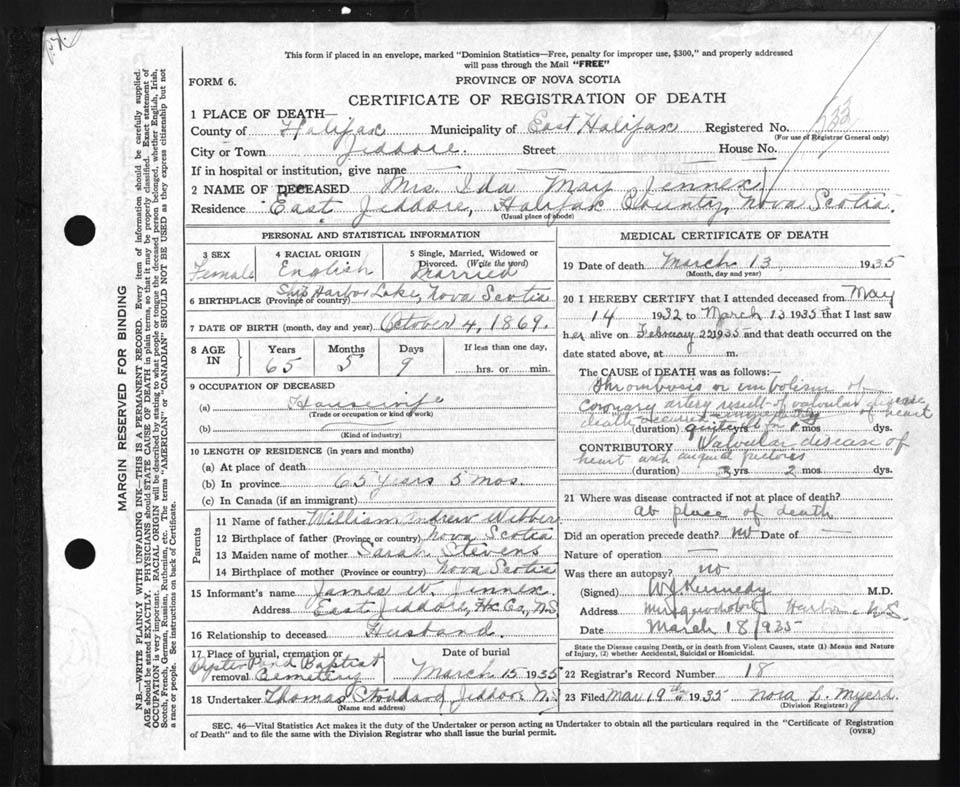 This form if placed in an envelope, marked "Dominion Statistics—Free, penalty for improper use, $300," and properly addressed
will pass through the Mail "FREE"
FORM 6.
PROVINCE OF NOVA SCOTIA
CERTIFICATE OF REGISTRATION OF DEATH
1 PLACE OF DEATH—
County of Halifax Municipality of East Halifax Registered No.
(For use of Registrar General only)
City or Town Jeddore. Street House No.
If in hospital or institution, give name
2 NAME OF DECEASED Mrs. Ida May Jennex
Residence East Jeddore, Halifax County, Nova Scotia.
(Usual place of abode)
PERSONAL AND STATISTICAL INFORMATION
3 SEX 4 RACIAL ORIGIN 5 Single, Married, Widowed or
Divorced. (Write the word)
Female English Married
6 BIRTHPLACE (Province or country) Ship Harbor Lake, Nova Scotia
7 DATE OF BIRTH (month, day and year) October 4, 1869.
8 AGE IN Years Months Days If less than one day,
65 5 9 hrs. or min.
9 OCCUPATION OF DECEASED
(a) Housewife
(Trade or occupation or kind of work)
(b)
(Kind of industry)
10 LENGTH OF RESIDENCE (in years and months)
(a) At place of death
(b) In province 65 years 5 mos.
(c) In Canada (if an immigrant)
Parents
11 Name of father William Andrew Webber
12 Birthplace of father (Province or country) Nova Scotia
13 Maiden name of mother Sarah Stevens
14 Birthplace of mother (Province or country) Nova Scotia
15 Informant's name James W. Jennex
Address East Jeddore, Hx Co, N.S.
16 Relationship to deceased Husband.
17 Place of burial, cremation or Date of burial
removal Oyster Pond Baptist Cemetery March 15 1935
18 Undertaker Thomas Stoddard Jeddore N.S.
(Name and address)
MEDICAL CERTIFICATE OF DEATH
19 Date of death March 13 1935
(Month, day and year)
20 I HEREBY CERTIFY that I attended deceased from May
14 1932 to March 13 1935 that I last saw
her alive on February 22 1935 and that death occurred on the
date stated above, at m.
The CAUSE of DEATH was as follows:—
Thrombosis or embolism of
coronary artery result of valvular disease
of heart
death occurred
(duration) yrs. mos. dys.
CONTRIBUTORY Valvular disease of
heart with angina pectoris
(duration) 3 yrs 2 mos. dys.
21 Where was disease contracted if not at place of death?
At place of death
Did an operation precede death? no Date of
Nature of operation
Was there an autopsy? no
(Signed) W J Kennedy M.D.
Address Musquodoboit Harbor N.S.
Date March 18 1935
State the Disease causing Death, or in death from Violent Causes, state (1) Means and Nature
of Injury, (2) whether Accidental, Suicidal or Homicidal.
22 Registrar's Record Number 18
23 Filed Mar 19th 1935 Nora L. Myers
(Division Registrar)
SEC. 46—Vital Statistics Act makes it the duty of the Undertaker or person acting as Undertaker to obtain all the particulars required in the "Certificate of Registration
of Death" and to file the same with the Division Registrar who shall issue the burial permit.
(OVER)
MARGIN RESERVED FOR BINDING
N.B.—WRITE PLAINLY WITH UNFADING INK—THIS IS A PERMANENT RECORD. Every item of information should be carefully supplied.
AGE should be stated EXACTLY. PHYSICIANS should STATE CAUSE OF DEATH in plain terms, so that it may be properly classified. Exact statement of
OCCUPATION is very important. RACIAL ORIGIN will be described by stating to what people or tongue the deceased person belonged, whether English, Irish,
Scotch, French, German, Russian, Ruthenian, etc. The terms "AMERICAN" or "CANADIAN" SHOULD NOT BE USED as they express citizenship but not
a race or people. See instructions on back of Certificate.